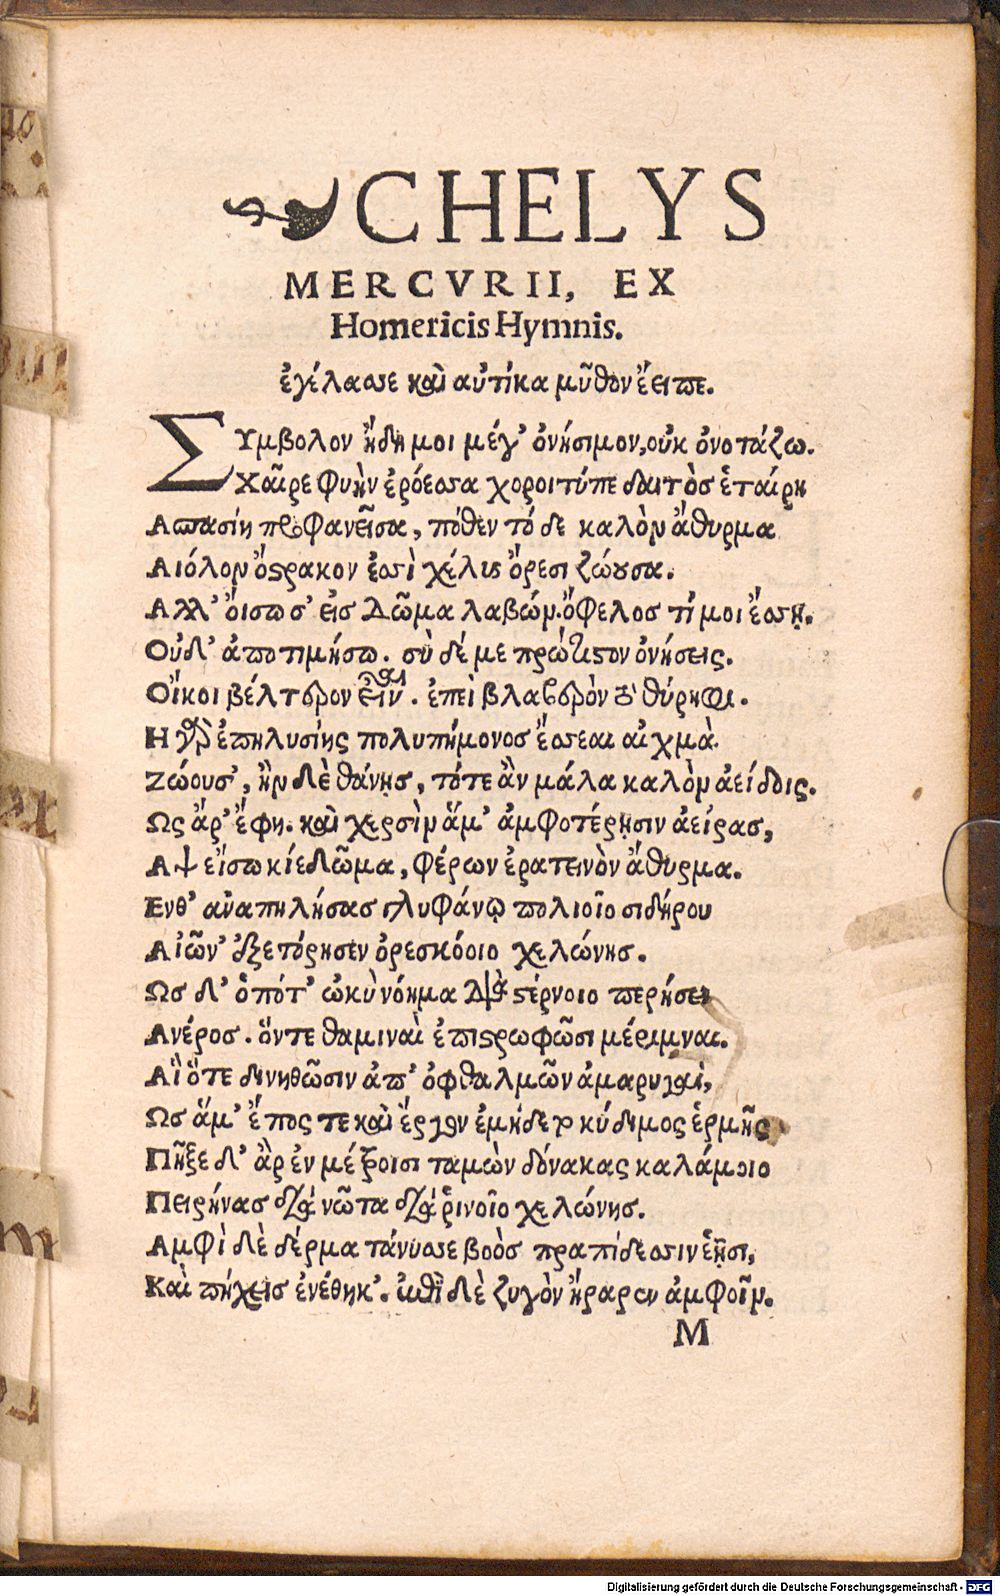 CHELYS
MERCVRII, EX
Homericis Hymnis.
ἐγέλασσε καὶ αὐτίκα μῦθον ἔειπε.
Σύμβολον ἤδη μοι μέγ' ὀνήσιμον, οὐκ ὀνοτάζω.
Χαῖρε φυὴν ἐρόεσσα χοροιτύπε δαιτὸς ἑταίρη
Ασπασίη προφανεῖσα, πόθεν τό δε καλὸν ἄθυρμα
Αιόλον ὄστρακον ἐσσὶ χέλυς ὄρεσι ζώουσα.
Αλλ' οἴσω σ' εἰς δῶμα λαβών. ὄφελος τί μοι ἔσσῃ.
Οὐδ' ἀποτιμήσω. σὺ δέ με πρώτιστον ὀνήσεις.
Οἴκοι βέλτερον εἶναι. ἐπεὶ βλαβερὸν τὸ θύρηφι.
Η γὰρ ἐπηλυσίης πολυπήμονος ἔσσεαι αἰχμὰ.
Ζώουσ', ἢν δὲ θάνῃς, τότε ἂν μάλα καλὸν ἀείδοις.
Ως ἄρ' ἔφη. καὶ χερσὶν ἅμ' ἀμφοτέρῃσιν ἀείρας,
Αψ εἴσω κίε δῶμα, φέρων ἐρατεινὸν ἄθυρμα.
Ενθ' ἀναπηλήσας γλυφάνῳ πολιοῖο σιδήρου
Αἰῶν' ἐξετόρησεν ὀρεσκόοιο χελώνης.
Ως δ' ὁπότ' ὠκὺ νόημα διὰ στέρνοιο περήσει
Ανέρος. ὅντε θαμιναὶ ἐπιστρωφῶσι μέριμναι.
Αἳ ὅτε δινηθῶσιν ἀπ' ὀφθαλμῶν ἀμαρυγαὶ,
Ως ἅμ' ἔπος τε καὶ ἔργον ἐμήδετο κύδιμος ἑρμῆς
Πῆξε δ' ἂρ ἐν μέτροισι ταμὼν δόνακας καλάμοιο
Πειρήνας διὰ νῶτα διὰ ῥινοῖο χελώνης.
Αμφὶ δὲ δέρμα τάνυσσε βοὸς πραπίδεσσιν ἑῇσι,
Καὶ πήχεις ἐνέθηκ'. ἐπὶ δὲ ζυγὸν ἤραρεν ἀμφοῖν.
M
Digitalisierung gefördert durch die Deutsche Forschungsgemeinschaft - DFG